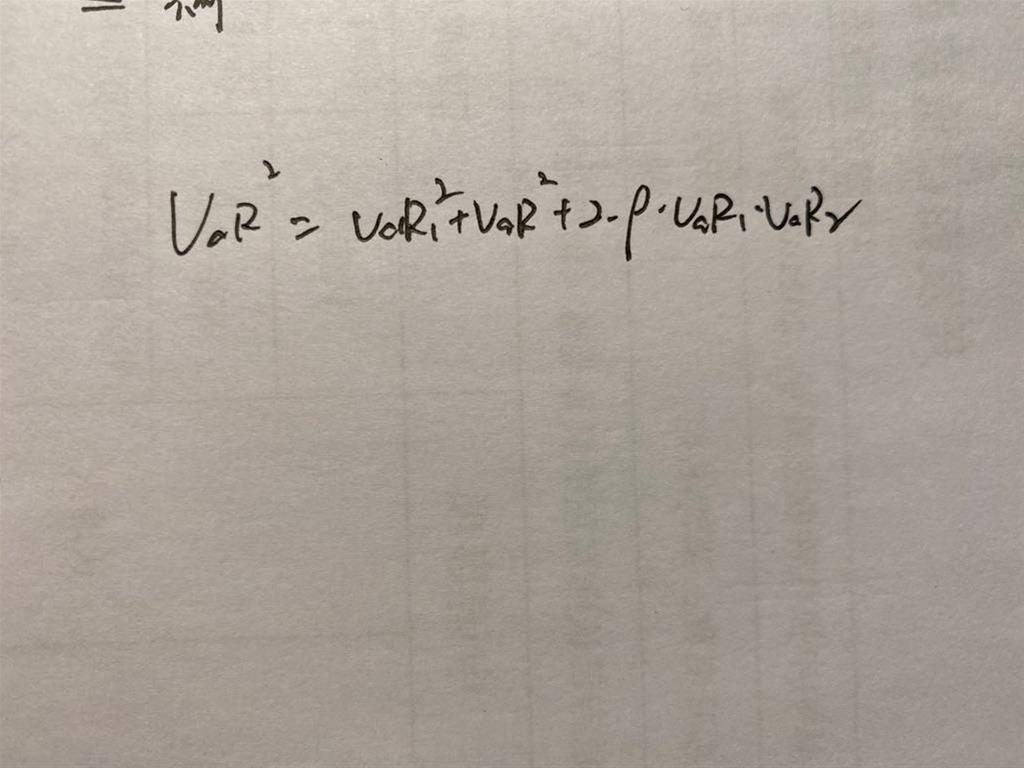 VaR² = VaR₁² + VaR² + 2·ρ·VaR₁·VaR₂